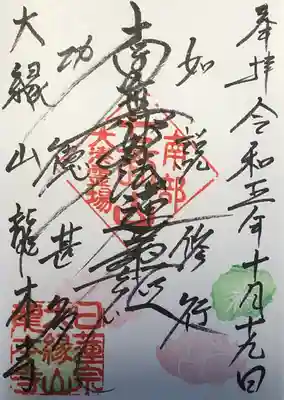 奉拝 令和五年十月十九日
如説修行
南無妙法蓮華経
功徳甚多
大縁山龍本寺
日蓮宗
大縁山
龍本寺